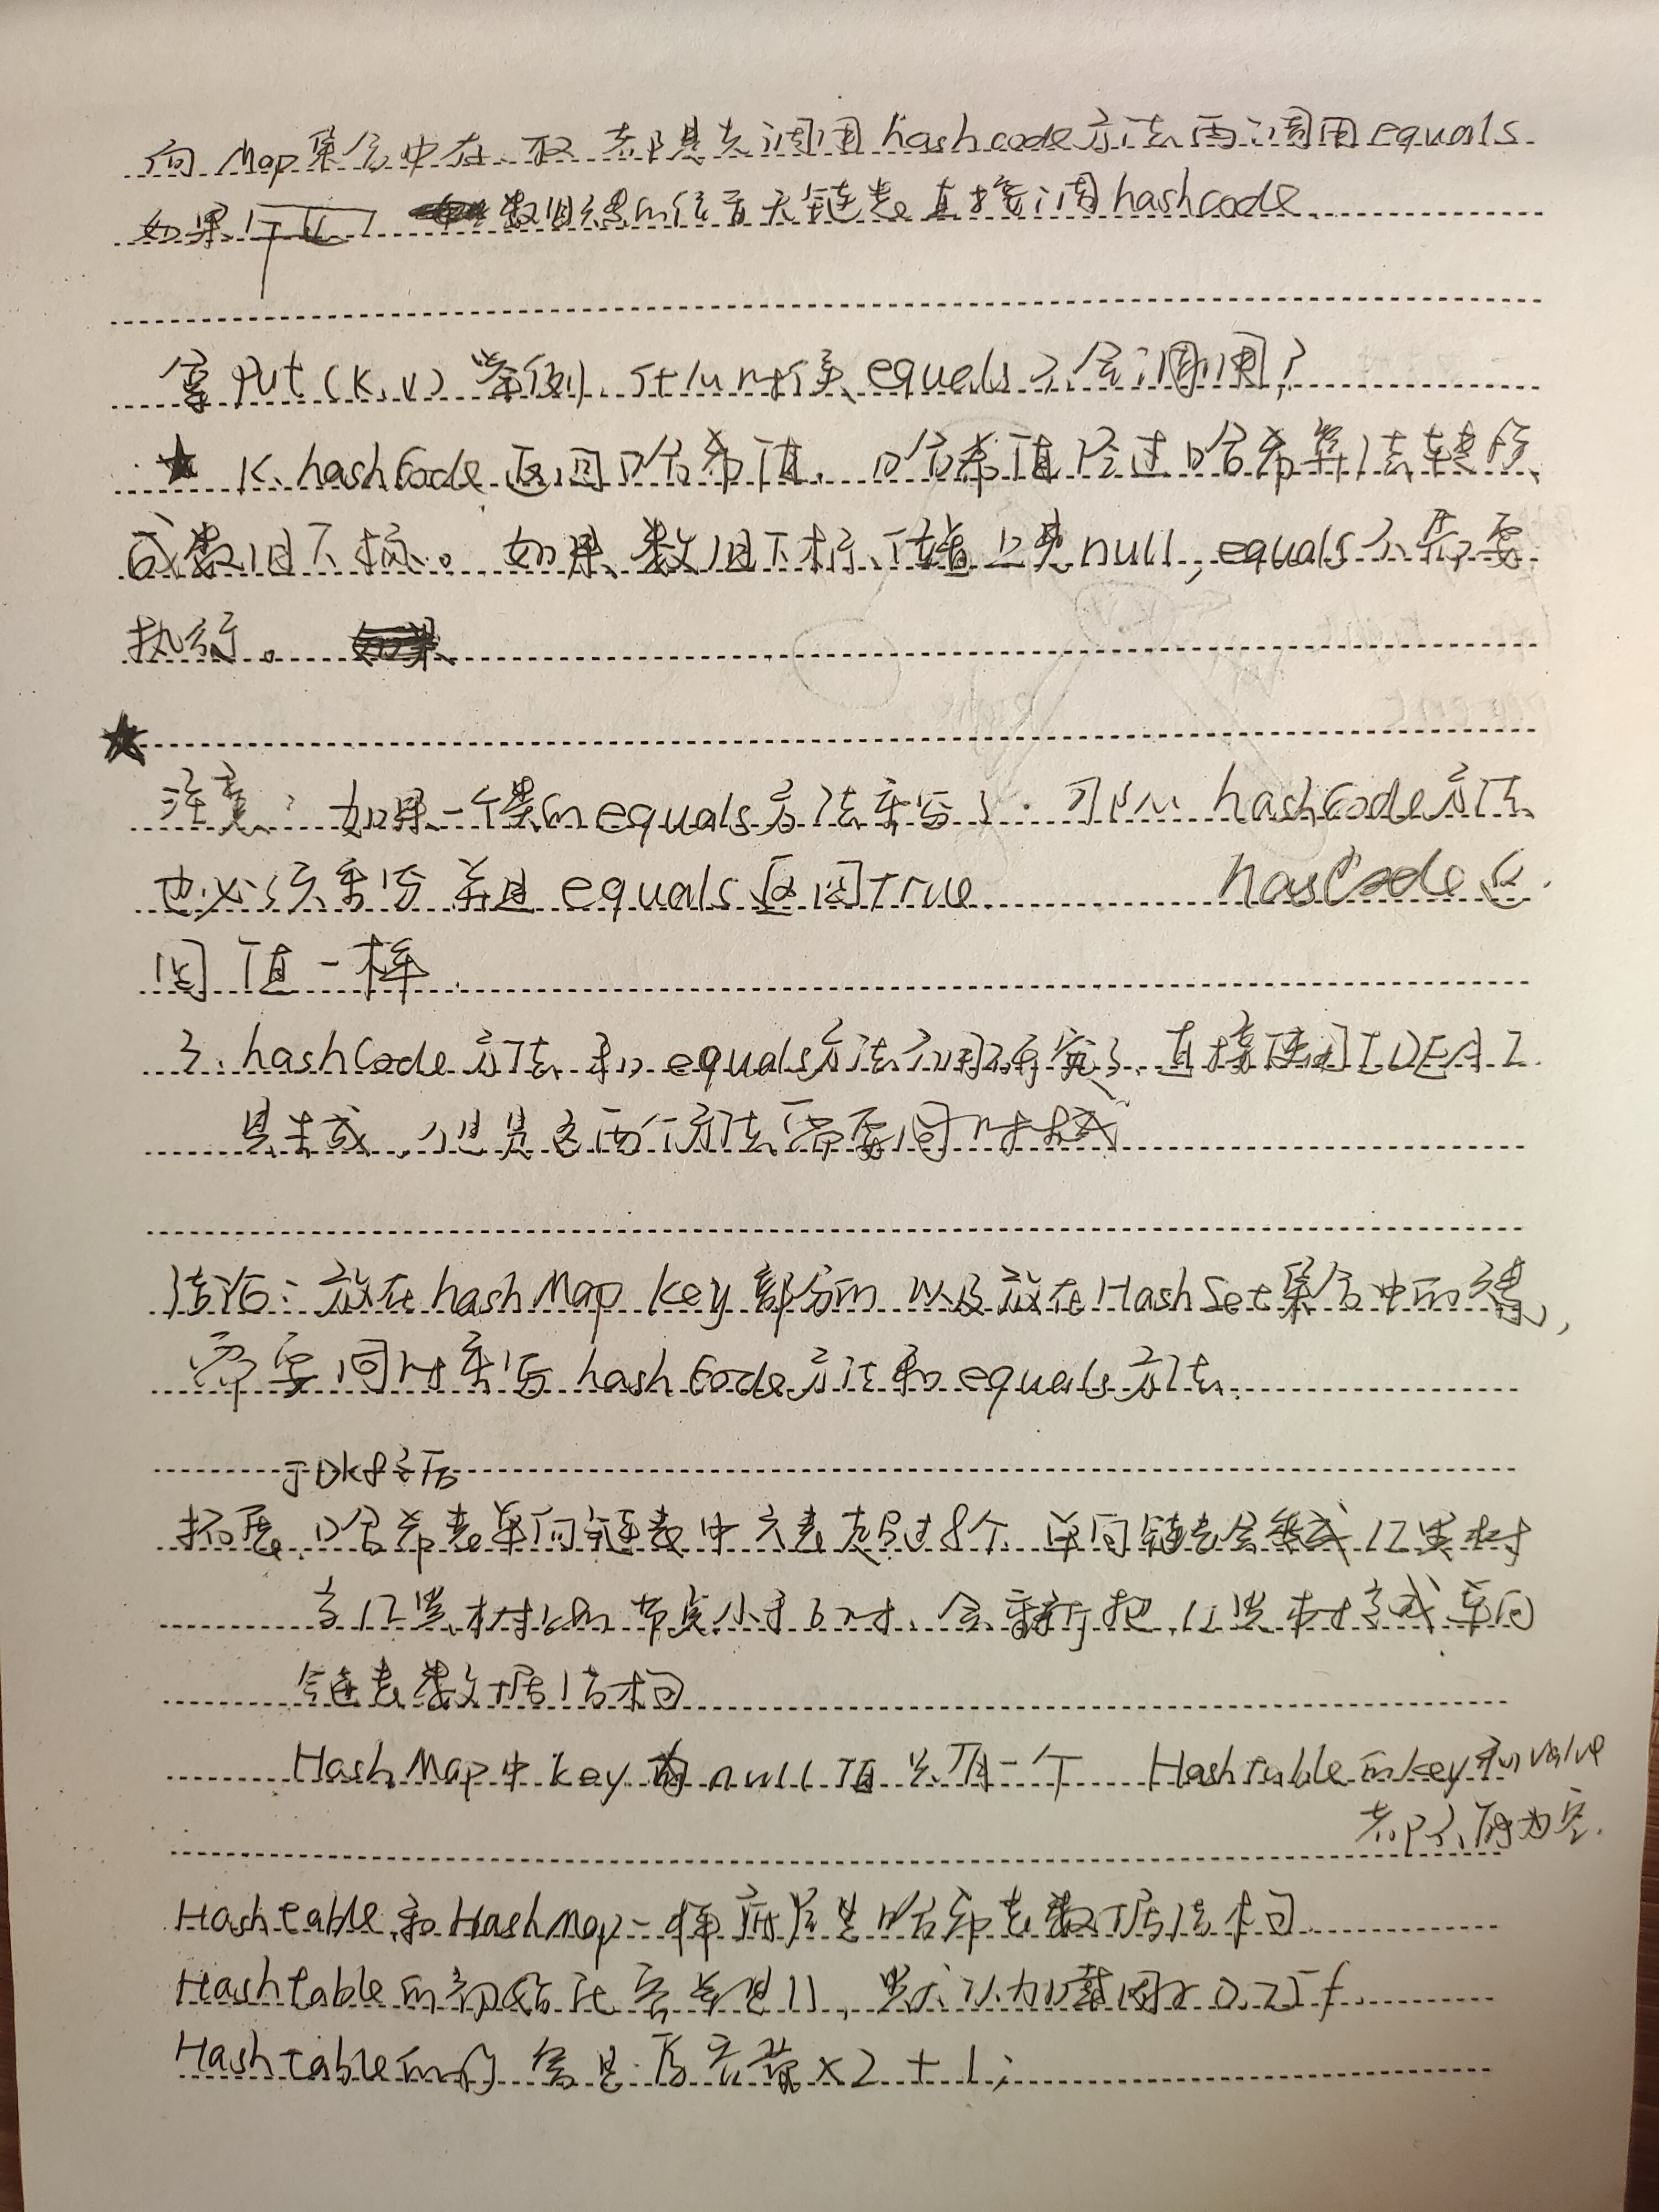 向Map集合中存、取 都是先调用hashcode方法再调用equals
如果 数组 位置无链表直接调hashcode
拿put(K,V)举例,什么时候equals不会调用?
★ K.hashCode返回哈希值,哈希值经过哈希算法转换
成数组下标。如果数组下标位置上是null,equals不需要
执行。
★
注意: 如果一个类的equals方法重写了.那么hashCode方法
也必须重写 并且equals返回true hasCode返
回值一样
hashCode方法和equals方法不用研究了,直接使用IDEA工
具生成,但是这两个方法需要同时生成
结论:放在hashMap key部分的 以及放在HashSet集合中的元素,
需要同时重写hashCode方法和equals方法.
JDK8之后
拓展.哈希表单向链表中元素超过8个 单向链表会变成红黑树
当红黑树上的节点小于6时,会重新把红黑树变成单向
链表数据结构
HashMap中key的null值只有一个 Hashtable的key和value
都不能为空.
Hashtable和HashMap一样 底层是哈希表数据结构
Hashtable的初始化容量是11,默认加载因子0.75f
Hashtable的扩容是:原容量×2+1;